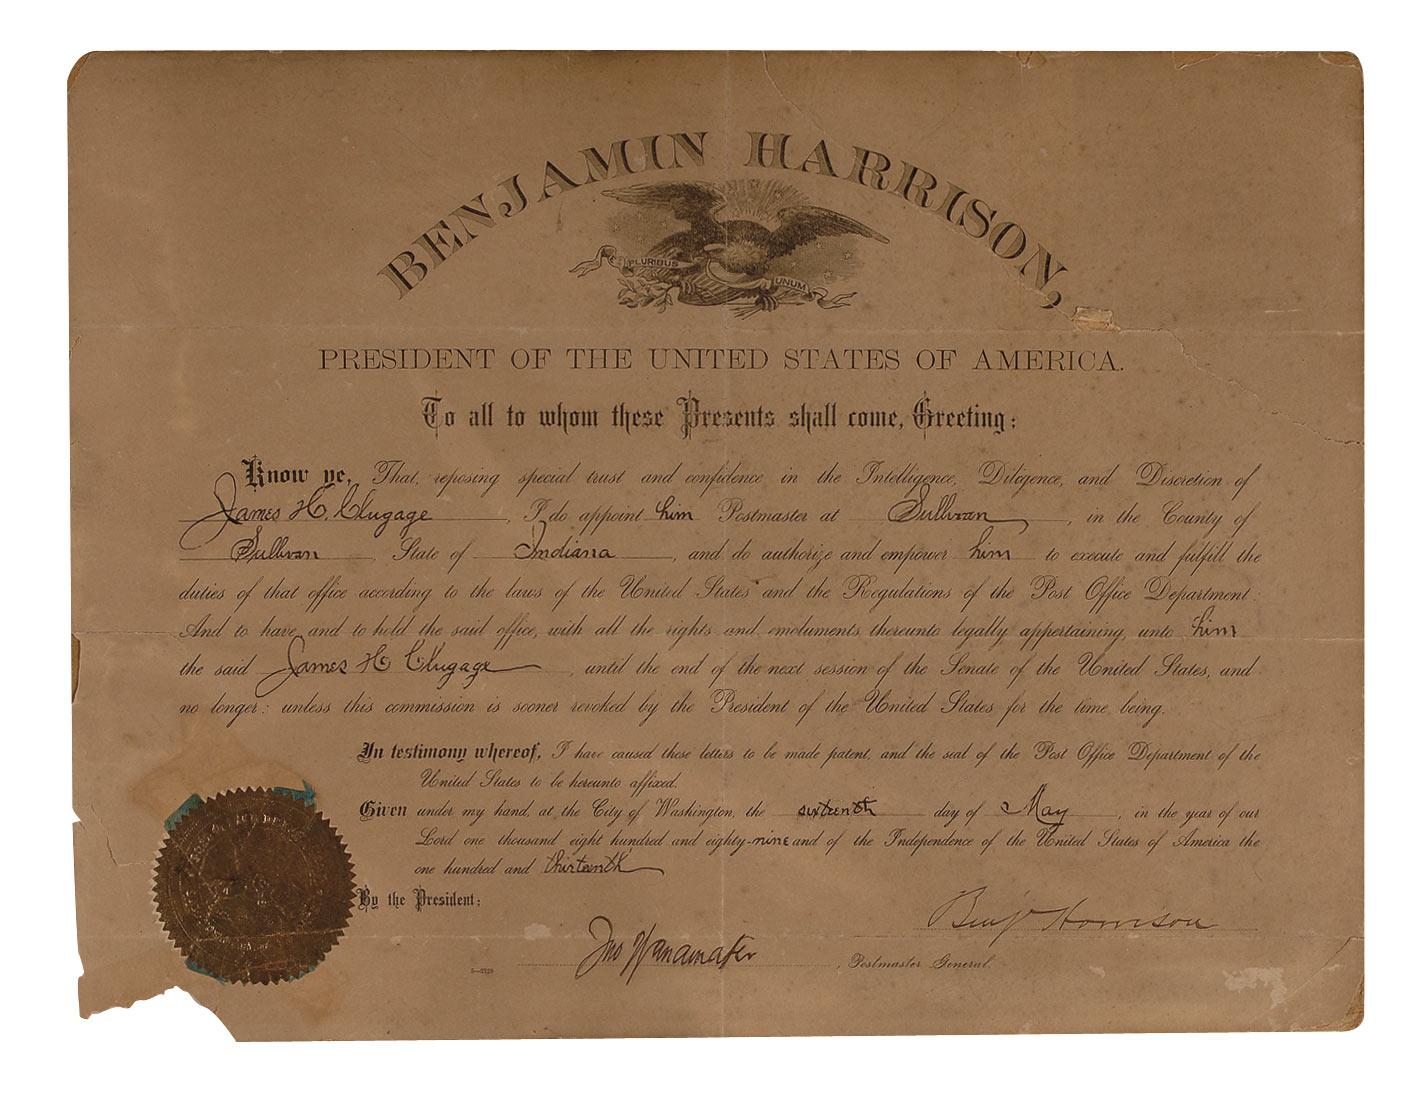 BENJAMIN HARRISON,
PLURIBUS UNUM
PRESIDENT OF THE UNITED STATES OF AMERICA.
To all to whom these Presents shall come, Greeting:
Know ye, That, reposing special trust and confidence in the Intelligence, Diligence, and Discretion of
James H. Clugage, I do appoint him Postmaster at Sullivan, in the County of
Sullivan State of Indiana, and do authorize and empower him to execute and fulfill the
duties of that office according to the laws of the United States and the Regulations of the Post Office Department:
And to have and to hold the said office, with all the rights and emoluments thereunto legally appertaining, unto him
the said James H Clugage, until the end of the next session of the Senate of the United States, and
no longer: unless this commission is sooner revoked by the President of the United States for the time being.
In testimony whereof, I have caused these letters to be made patent, and the seal of the Post Office Department of the
United States to be hereunto affixed.
Given under my hand, at the City of Washington, the sixteenth day of May, in the year of our
Lord one thousand eight hundred and eighty-nine and of the Independence of the United States of America the
one hundred and thirteenth
By the President:
Benj Harrison
Jno Wanamaker, Postmaster General.